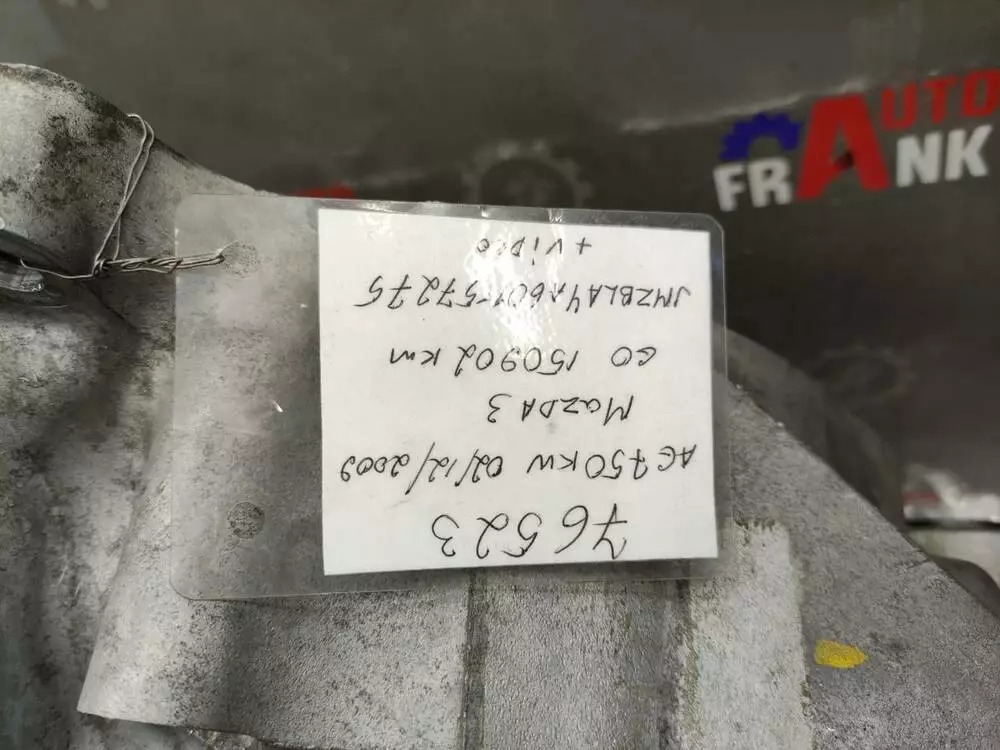 AUTO
FRANK
76523
AG750KW 02/12/2009
MAZDA 3
GO 150902 km
JMZBLA4A601157275
+ ViDEO